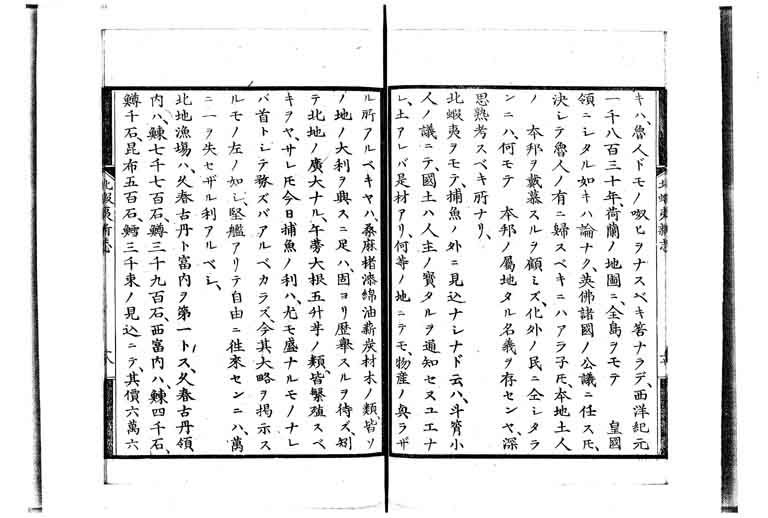 キハ、魯人ドモノ啜ヒヲナスベキ筈ナラデ、西洋紀元
一千八百三十年、荷蘭ノ地圖ニ、全島ヲモテ　皇國
領ニシタル如キハ論ナク、英佛諸國ノ公議ニ任ス𪜈、
決シテ魯人ノ有ニ歸スベキニハアラ子𪜈、本地土人
ノ　本邦ヲ戴慕スルヲ顧ミズ、化外ノ民ニ全シタラ
ンニハ、何モテ　本邦ノ屬地タル名義ヲ存センヤ、深
思熟考スベキ所ナリ、
北蝦夷ヲモテ、捕魚ノ外ニ見込ナシナド云ハ、斗筲小
人ノ議ニテ、國土ハ人主ノ寳タルヲ通知セヌユエナ
レ、土アレバ是材アリ、何等ノ地ニテモ、物産ノ與ラザ
ル所アルベキヤハ、桑麻楮漆綿油薪炭材木ノ類、皆ソ
ノ地ノ大利ヲ興スニ足ハ、固ヨリ歴擧スルヲ待ズ、矧
テ北地ノ廣大ナル、午蒡大根五升芋ノ類、皆繁殖スベ
キヲヤ、サレ𪜈今日捕魚ノ利ハ、尤モ盛ナルモノナレ
バ首トシテ務ズバアルベカラズ、今其大略ヲ掲示ス
ルモノ左ノ如シ、堅艦アリテ自由ニ往來センニハ、萬
ニ一ヲ失セザル利アルベシ、
北地漁場ハ、久春古丹ト富内ヲ第一トス、久春古丹領
内ハ、鰊七千七百石、鱒三千九百石、西富内ハ、鰊四千石、
鱒千石、昆布五百石、鱈三千束ノ見込ニテ、其價六萬六
北蝦夷新志
北蝦夷新志
十八